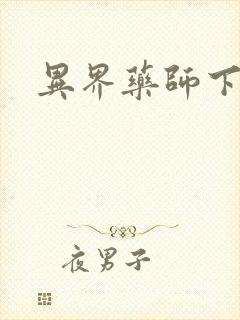 異界藥師下
夜男子